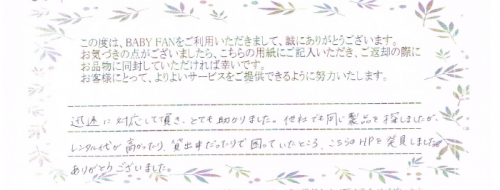 この度は、BABY FANをご利用いただきまして、誠にありがとうございます。
お気づきの点がございましたら、こちらの用紙にご記入いただき、ご返却の際に
お品物に同封していただければ幸いです。
お客様にとって、よりよいサービスをご提供できるように努力いたします。
迅速に対応して頂き、とても助かりました。他社でも同じ製品を探しましたが、
レンタル代が高かったり、貸出中だったりで困っていたところ、こちらのHPを発見しました。
ありがとうございました。